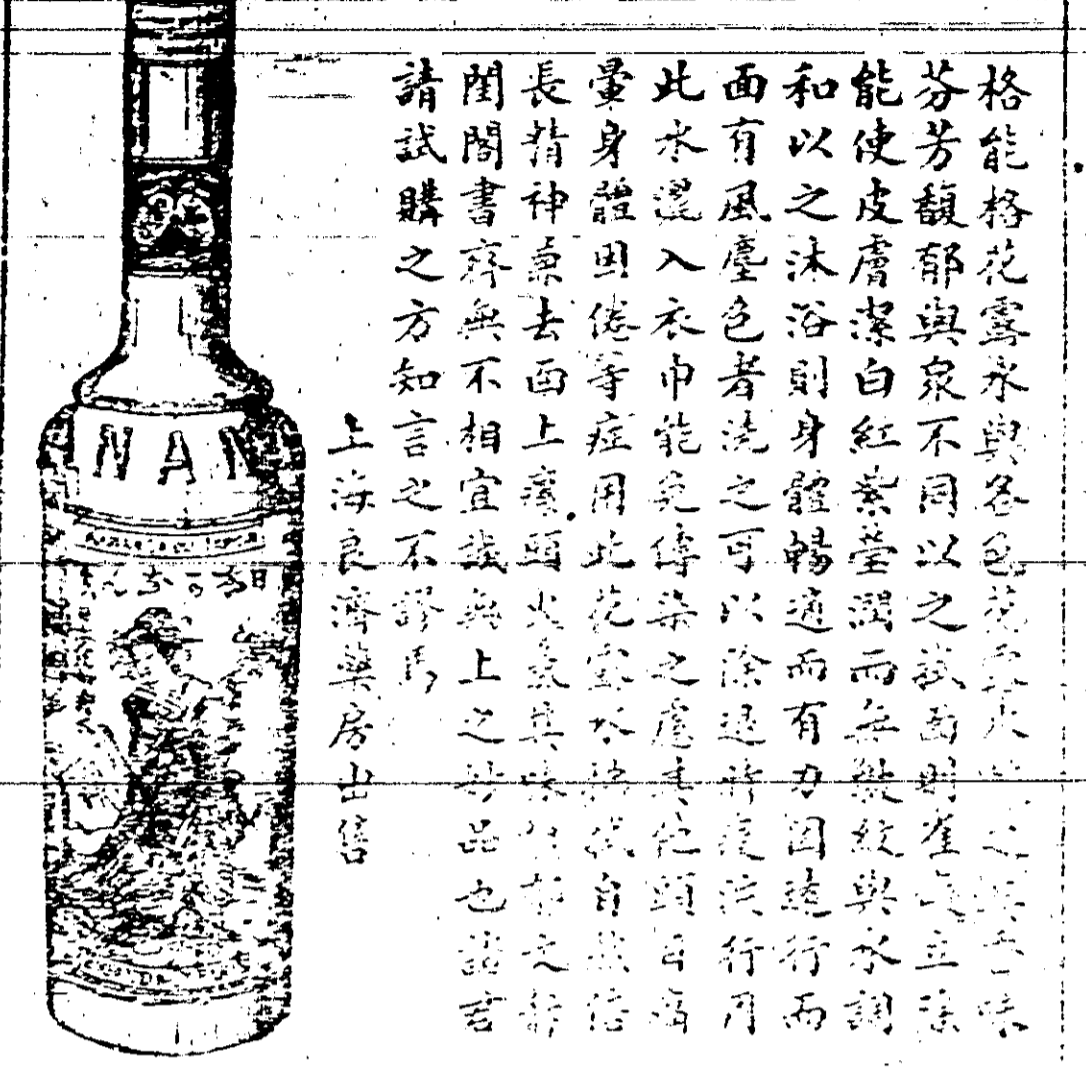 格能格花露水與各色花露大之其香味
芬芳馥郁與衆不同以之拭面則雀斑立除
能使皮膚潔白紅紫瑩潤而無皺紋與水調
和以之沐浴則身體暢適而有力因遠行而
面有風塵色者洗之可以除退時疫流行用
此水灑入衣巾能免傳染之處其他頭目痛
暈身體困倦等症用此花露水拭自然倍
長精神兼去面上瘡頭火氣其味郁之
閨閣書齋無不相宜誠無上之妙品也諸君
請試購之方知言之不謬焉
上海良濟藥房出售
NAN